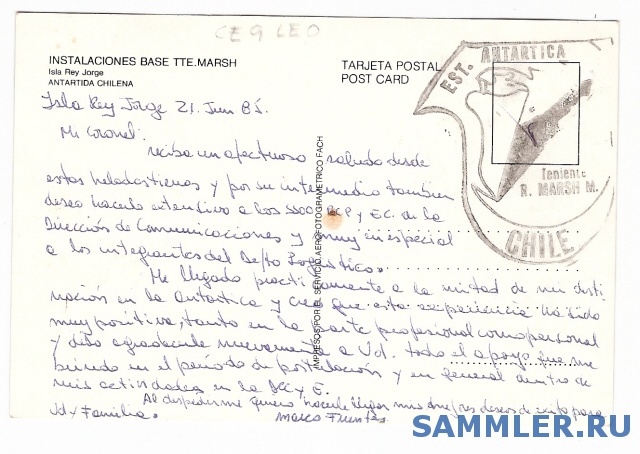 CE 9 LEO
INSTALACIONES BASE TTE. MARSH
Isla Rey Jorge
ANTARTIDA CHILENA
TARJETA POSTAL
POST CARD
EST. ANTARTICA
Teniente
R. MARSH M.
CHILE
IMPRESOS POR EL SERVICIO AEROFOTOGRAMETRICO FACH
Isla Rey Jorge 21. Jun 85.
Mi Coronel:
reciba un afectuoso saludo desde
estas heladas tierras y por su intermedio tambien
deseo hacerlo extensivo a los SSOO, y EC. de la
Dirección de Comunicaciones y muy en especial
a los integrantes del Depto Logistico.
He llegado practicamente a la mitad de mi desti
nación en la Antartica y creo que esta experiencia ha sido
muy positiva, tanto en la parte profesional como personal
y debo agradecerle nuevamente a Ud. todo el apoyo que me
brindo en el período de postulación y en general dentro de
mis actividades en la
Al despedirme quiero hacerle llegar mis mejores deseos de exito para
Ud y Familia. Marco
SAMMLER.RU